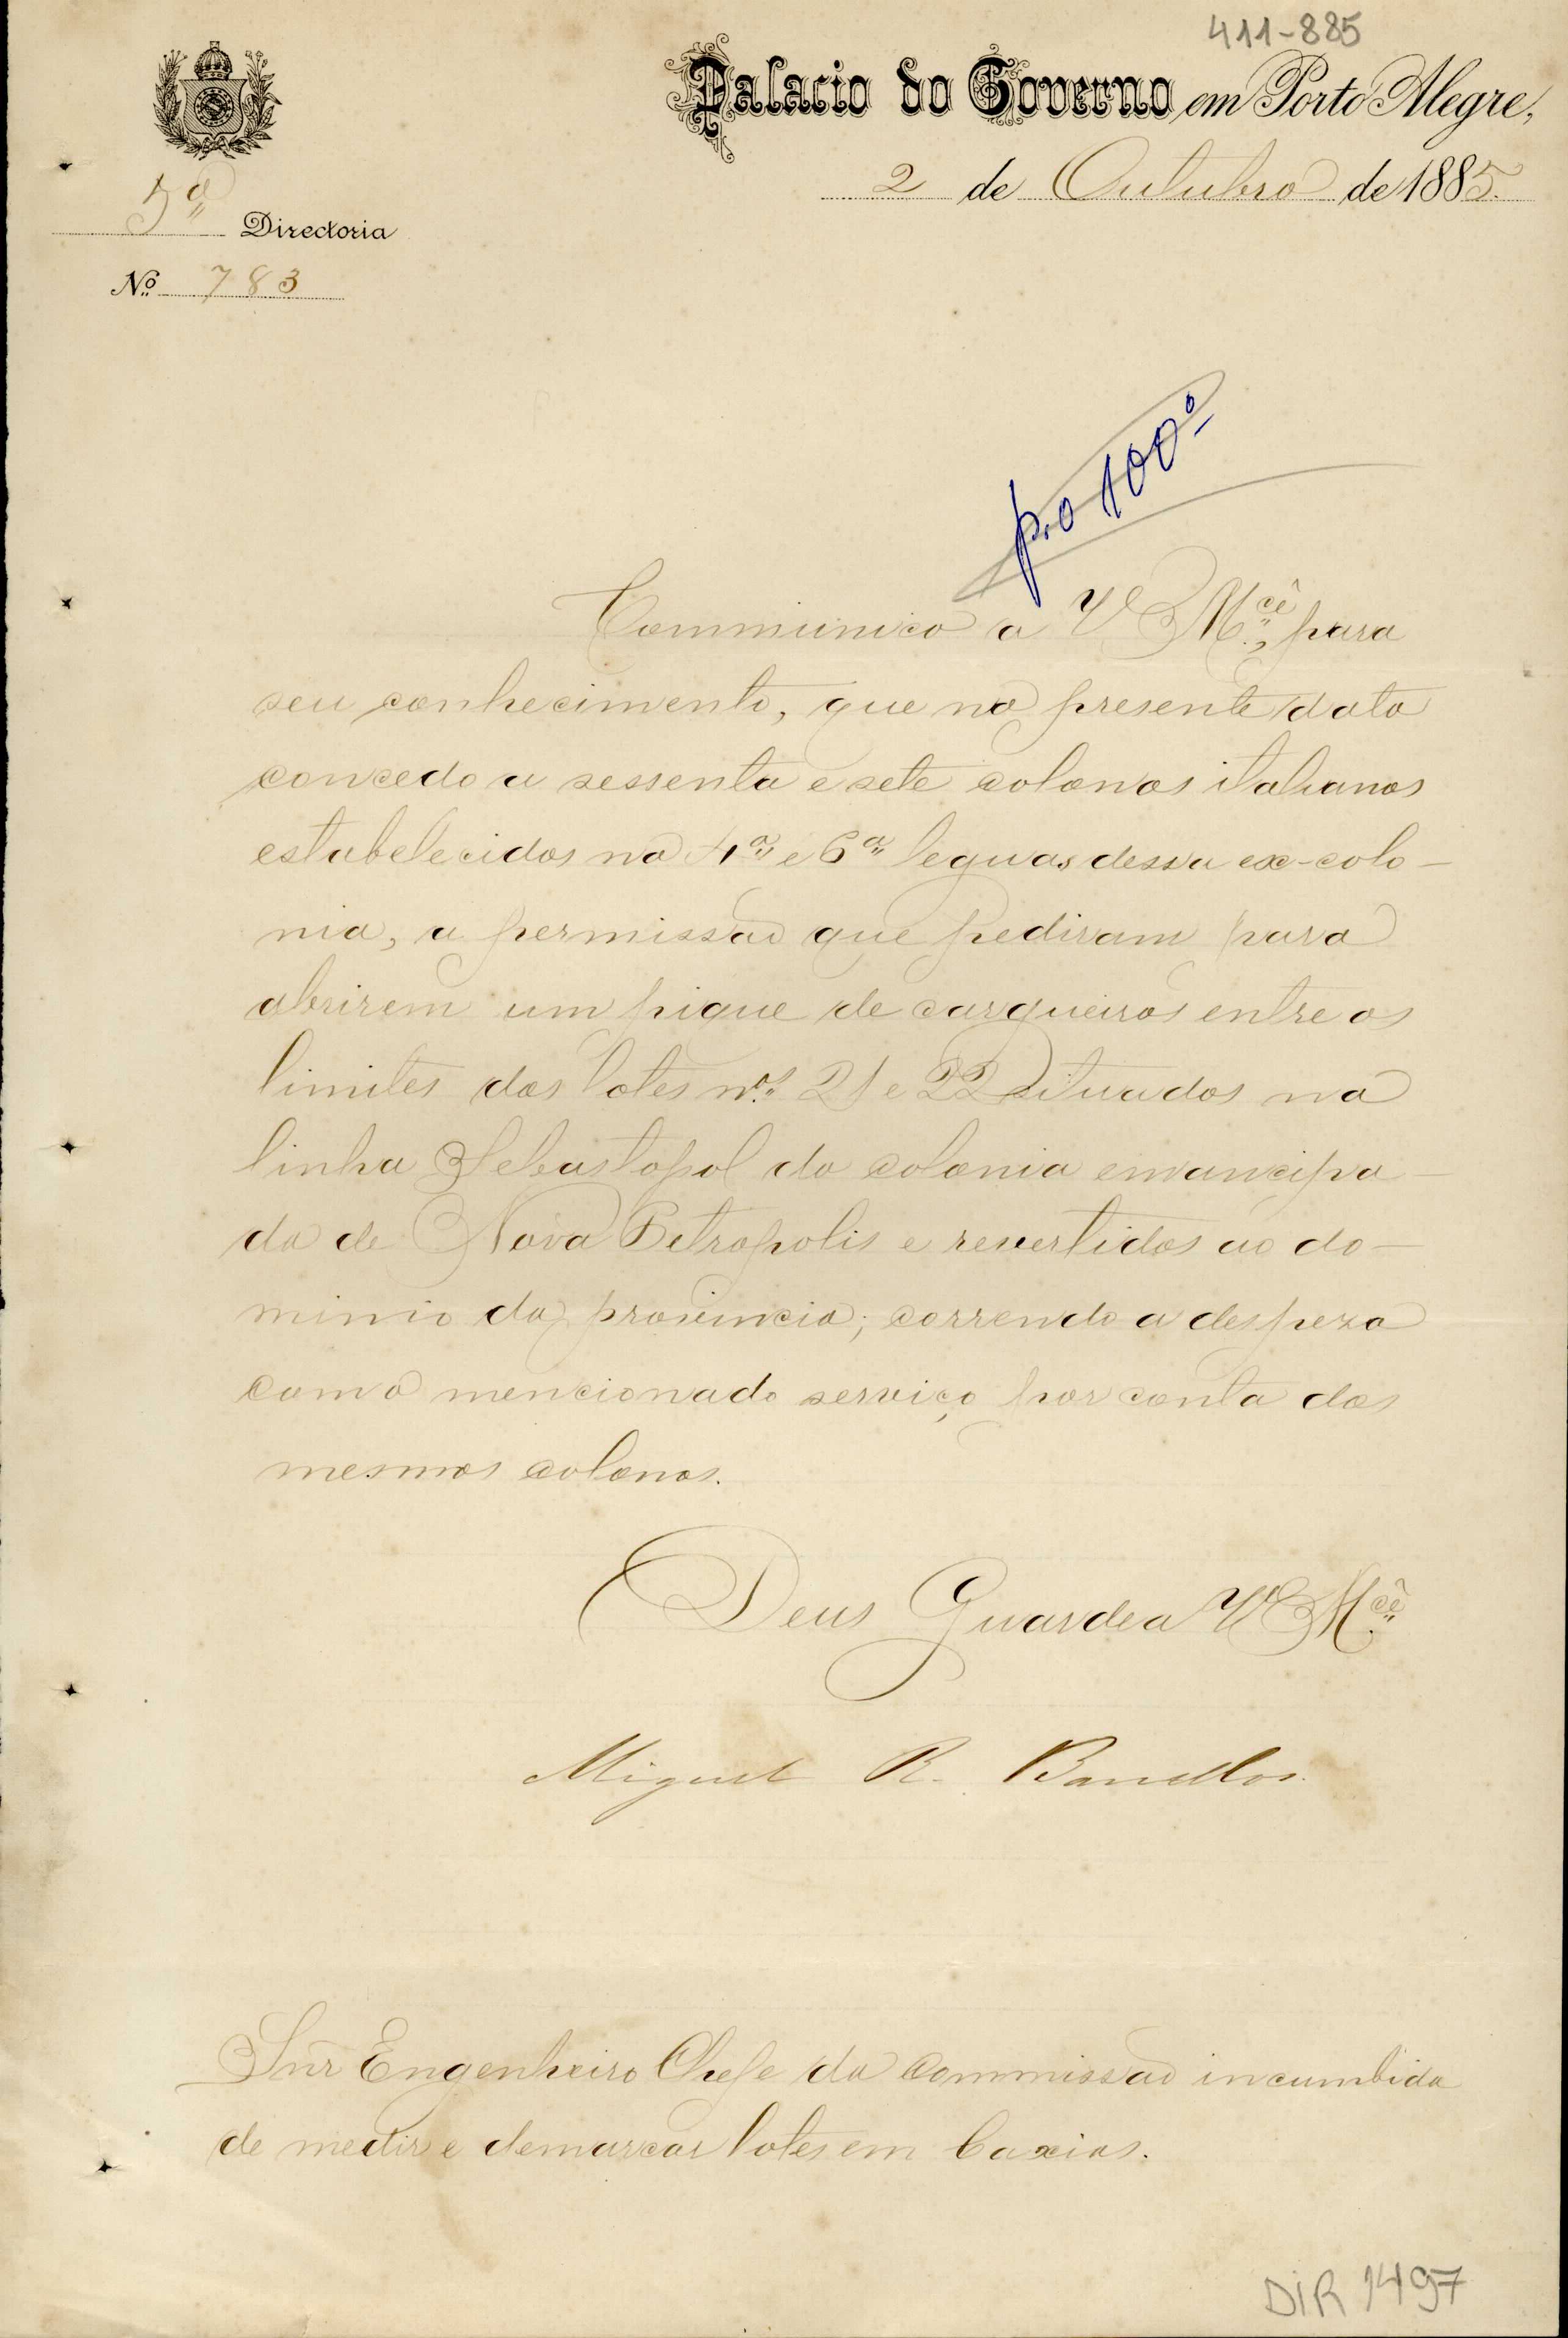 411-885
Palacio do Governo em Porto Alegre,
2 de Outubro de 1885.
5ª Directoria
Nº 783
pro 100º
Communico a V Mcê, para
seu conhecimento, que na presente data
concedo a sessenta e sete colonos italianos
estabelecidos na 4ª e 6ª leguas dessa ex-colo-
nia, a permissão que pediram para
abrirem um pique de cargueiros entre os
limites dos lotes nos 21 e 22 situados na
linha Sebastopol da colonia emancipa-
da de Nova Petropolis e revertidos ao do-
minio da provincia; correndo a despeza
com o mencionado serviço por conta dos
mesmos colonos.
Deus Guarde a V Mcê
Miguel R. Barcellos.
Snr Engenheiro Chefe da Commissão incumbida
de medir e demarcar lotes em Caxias.
DIR 1497